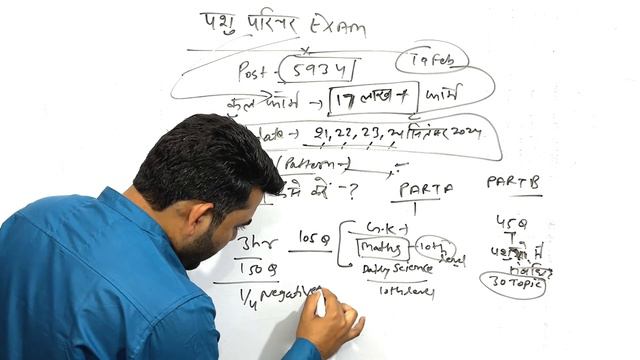 पशु परिचर EXAM
Post - 5934
19 Feb
कुल फॉर्म → 17 लाख + फॉर्म
date → 21, 22, 23, 24 सितंबर 2024
(Pattern →)
करें -?
PART A
PART B
3hr
150Q
1/4 Negative
105Q
G.K.
Maths - 10th level
Daily Science
10th level
45Q
पशुओं में
30 Topic